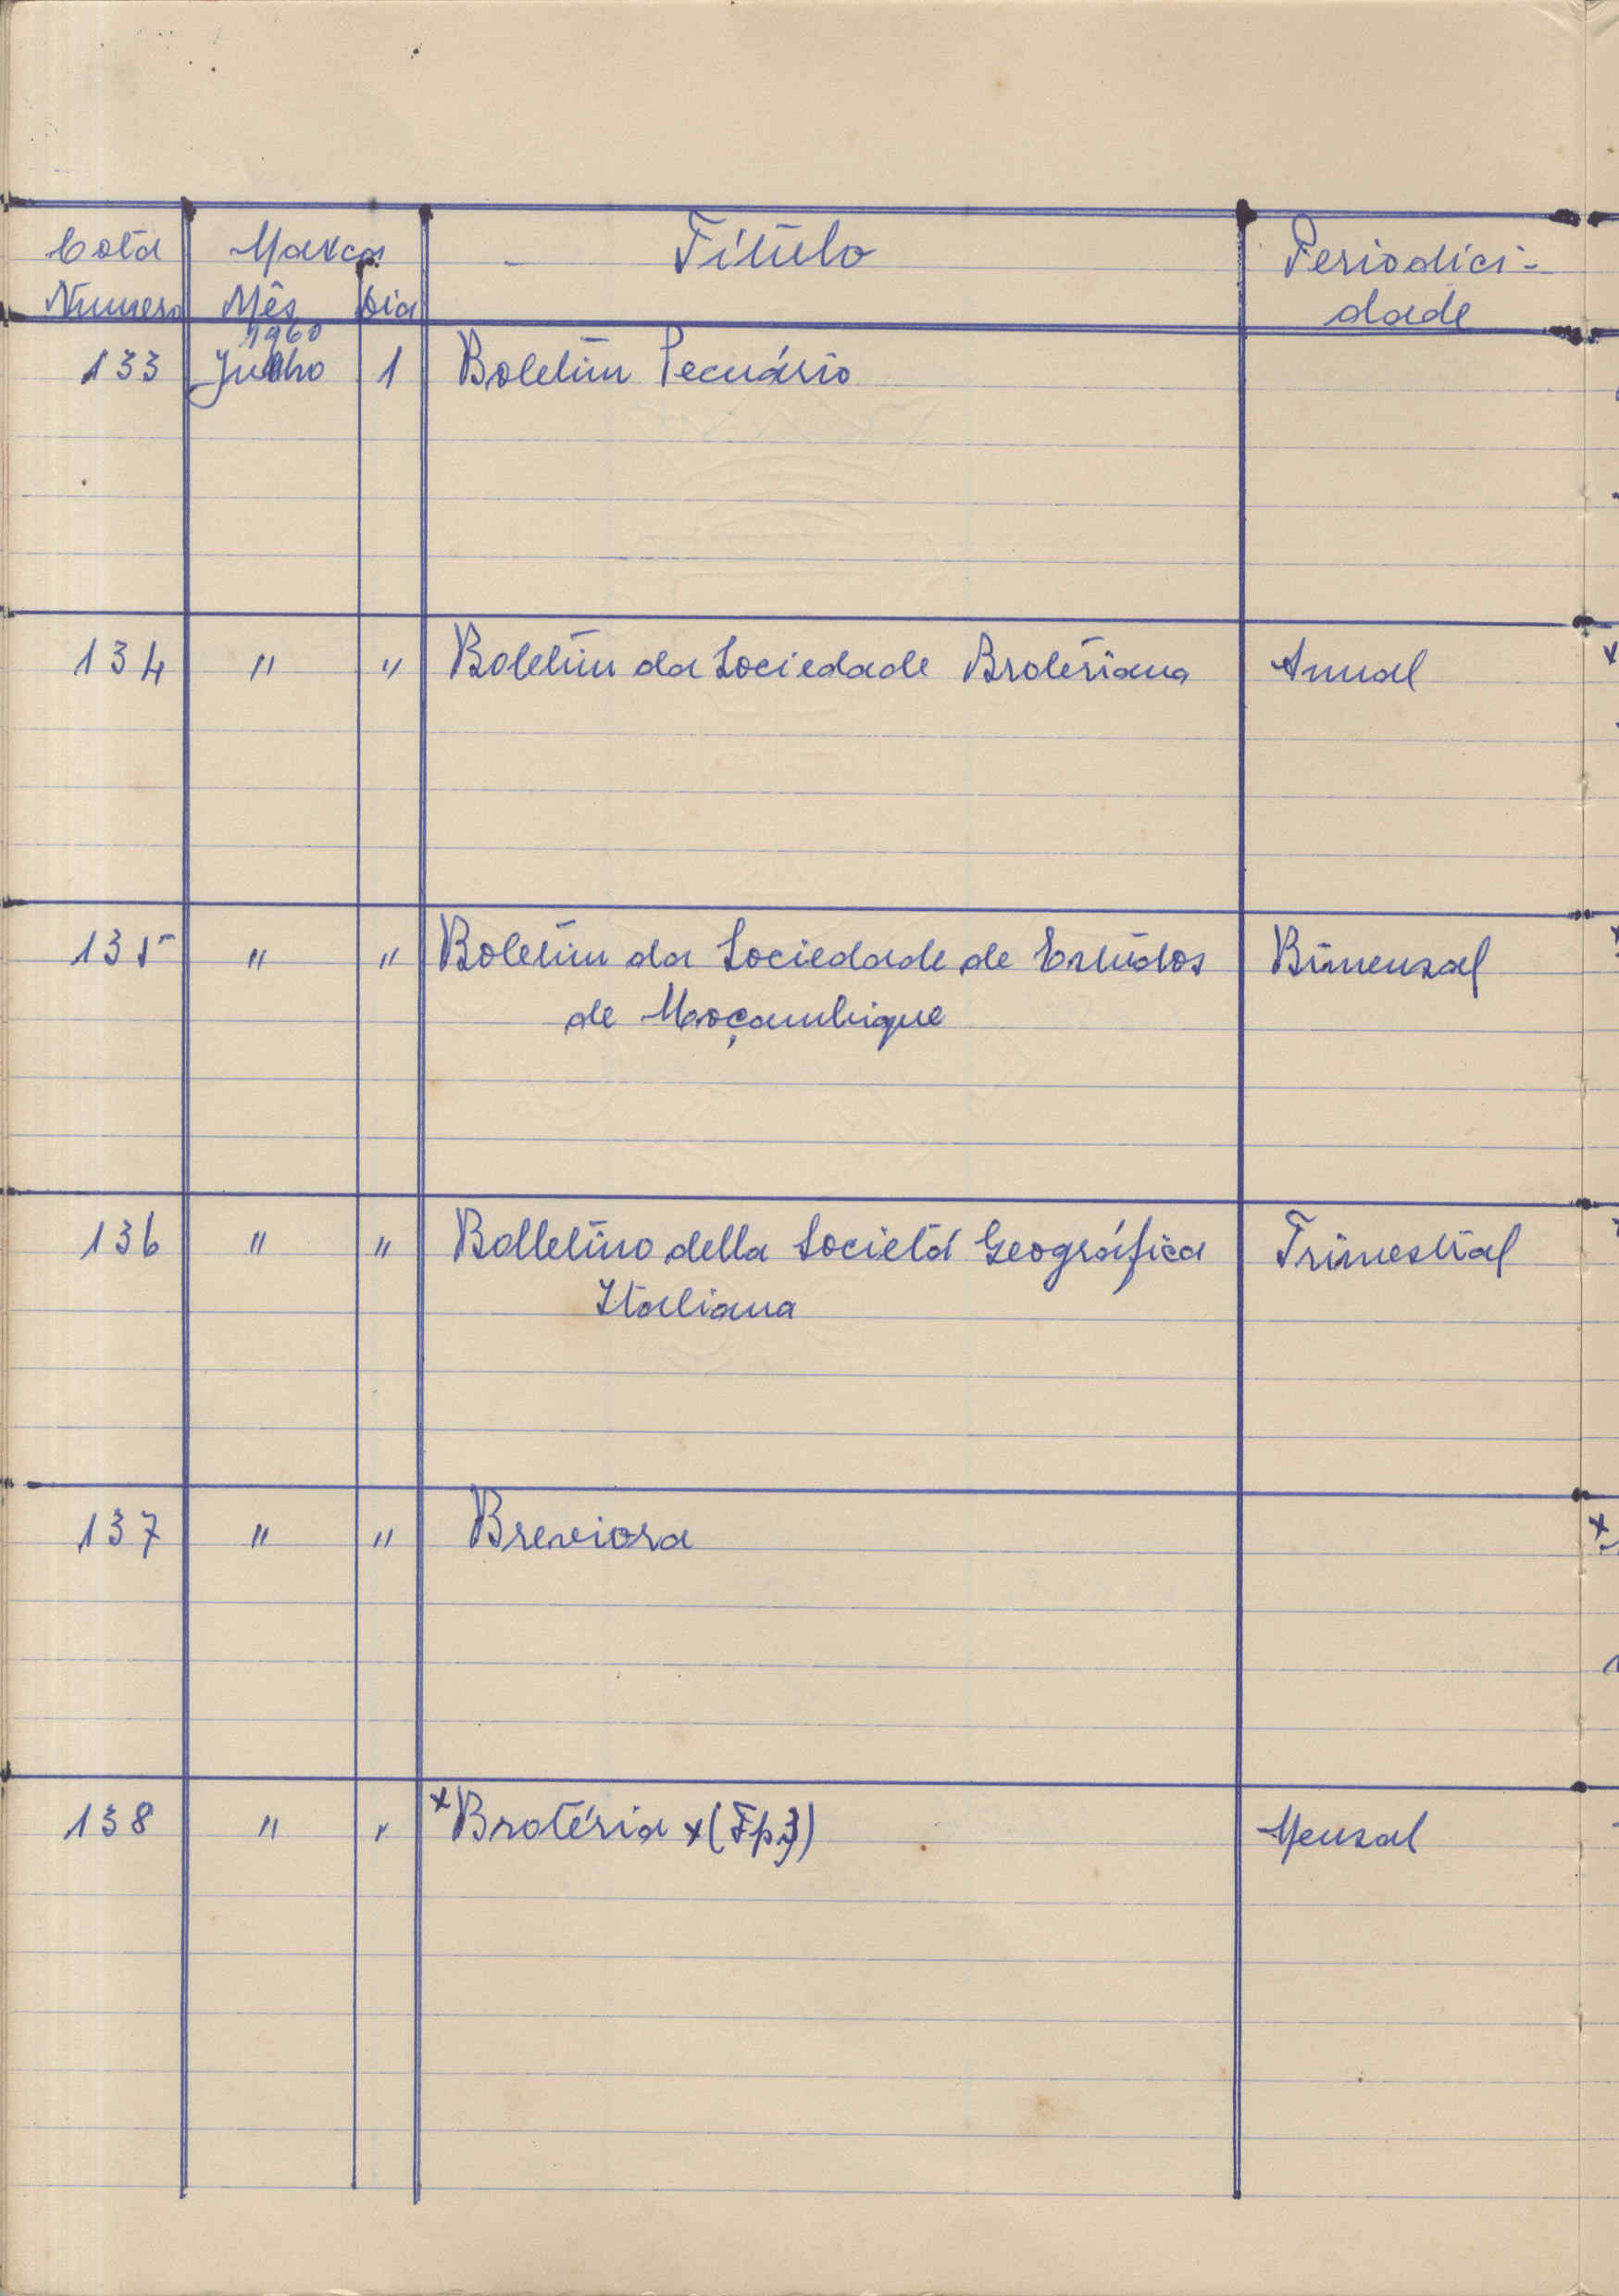 Cota Marca Título Periodici-
Numero Mês Dia dade
1960
133 Julho 1 Boletim Pecuário
134 " " Boletim da Sociedade Broteriana Anual
135 " " Boletim da Sociedade de Estudos Bimensal
de Moçambique
136 " " Bolletino della Societá Geográfica Trimestral
Italiana
137 " " Breviora
138 " " *Brotéria x( Mensal